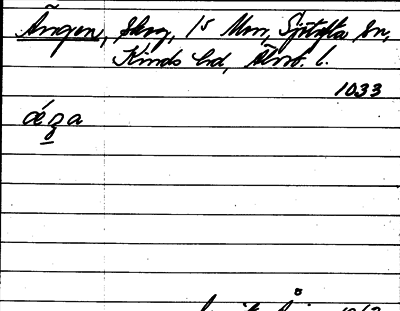 Ängen, Skog, 15 Mon, Sjötofta Sn,
Kinds hd, Älvsb. l.
1033
ǽŋa